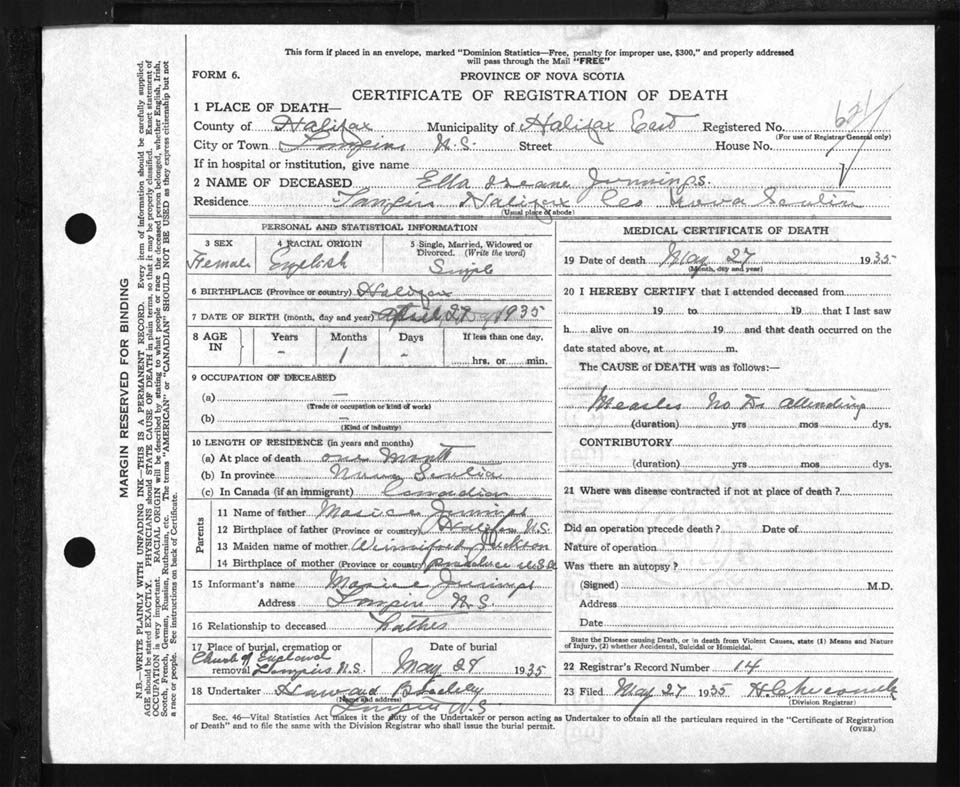 This form if placed in an envelope, marked "Dominion Statistics—Free, penalty for improper use, $300," and properly addressed
will pass through the Mail "FREE"
FORM 6.
PROVINCE OF NOVA SCOTIA
CERTIFICATE OF REGISTRATION OF DEATH
1 PLACE OF DEATH—
County of Halifax Municipality of Halifax East Registered No.
(For use of Registrar General only)
City or Town N.S. Street House No.
If in hospital or institution, give name
2 NAME OF DECEASED Ella Jennings.
Residence Halifax Co Nova Scotia
(Usual place of abode)
PERSONAL AND STATISTICAL INFORMATION
3 SEX
Female
4 RACIAL ORIGIN
English
5 Single, Married, Widowed or Divorced. (Write the word)
Single
6 BIRTHPLACE (Province or country) Halifax
7 DATE OF BIRTH (month, day and year) April 27 1935
8 AGE IN
Years
-
Months
1
Days
-
If less than one day,
hrs. or min.
9 OCCUPATION OF DECEASED
(a) —
(Trade of occupation or kind of work)
(b) —
(Kind of industry)
10 LENGTH OF RESIDENCE (in years and months)
(a) At place of death one Month
(b) In province Nova Scotia
(c) In Canada (if an immigrant) Canadian
Parents
11 Name of father Jennings
12 Birthplace of father (Province or country) Halifax N.S.
13 Maiden name of mother Jackson
14 Birthplace of mother (Province or country)
15 Informant's name Jennings
Address N.S.
16 Relationship to deceased Father
17 Place of burial, cremation or
removal Church of England N.S.
May 28 1935
18 Undertaker Howard
(Name and address)
N.S.
MEDICAL CERTIFICATE OF DEATH
19 Date of death May 27 1935
(Month, day and year)
20 I HEREBY CERTIFY that I attended deceased from
19 to 19 that I last saw
h alive on 19 and that death occurred on
date stated above, at m.
The CAUSE of DEATH was as follows:—
Measles No Dr attending
(duration) yrs mos dys.
CONTRIBUTORY
(duration) yrs mos dys.
21 Where was disease contracted if not at place of death?
Did an operation precede death? Date of
Nature of operation
Was there an autopsy?
(Signed) M.D.
Address
Date
State the Disease causing Death, or in death from Violent Causes, state (1) Means and Nature
of Injury, (2) whether Accidental, Suicidal or Homicidal.
22 Registrar's Record Number 14
23 Filed May 27 1935
(Division Registrar)
Sec. 46—Vital Statistics Act makes it the duty of the Undertaker or person acting as Undertaker to obtain all the particulars required in the "Certificate of Registration
of Death" and to file the same with the Division Registrar who shall issue the burial permit.
(OVER)
MARGIN RESERVED FOR BINDING
N.B.—WRITE PLAINLY WITH UNFADING INK—THIS IS A PERMANENT RECORD. Every item of information should be carefully supplied.
AGE should be stated EXACTLY. PHYSICIANS should STATE CAUSE OF DEATH in plain terms, so that it may be properly classified. Exact statement of
OCCUPATION is very important. RACIAL ORIGIN will be described by stating to what people or race the deceased person belonged, whether English, Irish,
Scotch, French, German, Russian, Ruthenian, etc. The terms "AMERICAN" or "CANADIAN" SHOULD NOT BE USED as they express citizenship but not
a race or people. See instructions on back of Certificate.